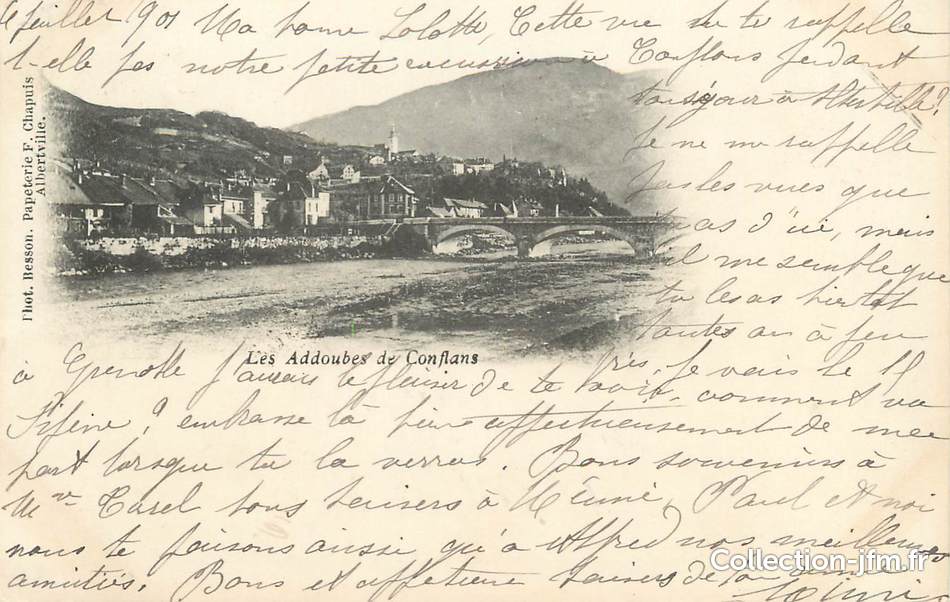 4 juillet 1901 Ma bonne Lolotte, Cette vue du te rappelle
t-elle pas notre petite excursion à Conflans pendant
ton séjour à Albertville?
Je ne me rappelle
pas les vues que
tu as d'ici, mais
il me semble que
tu les as bientôt
toutes ou à peu
près. Je vais le 11
à Grenoble j'aurais le plaisir de te voir. comment va
Fifine? embrasse là bien affectueusement de ma
part lorsque tu la verras. Bons souvenirs à
Mr bons baisers à Paul et moi
nous te faisons ainsi qu'à Alfred nos meilleures
amitiés. Bons et affectueux baisers de ton amie
Phot. Besson. Papeterie F. Chapuis
Albertville.
Les Addoubes de Conflans
Collection-jfm.fr